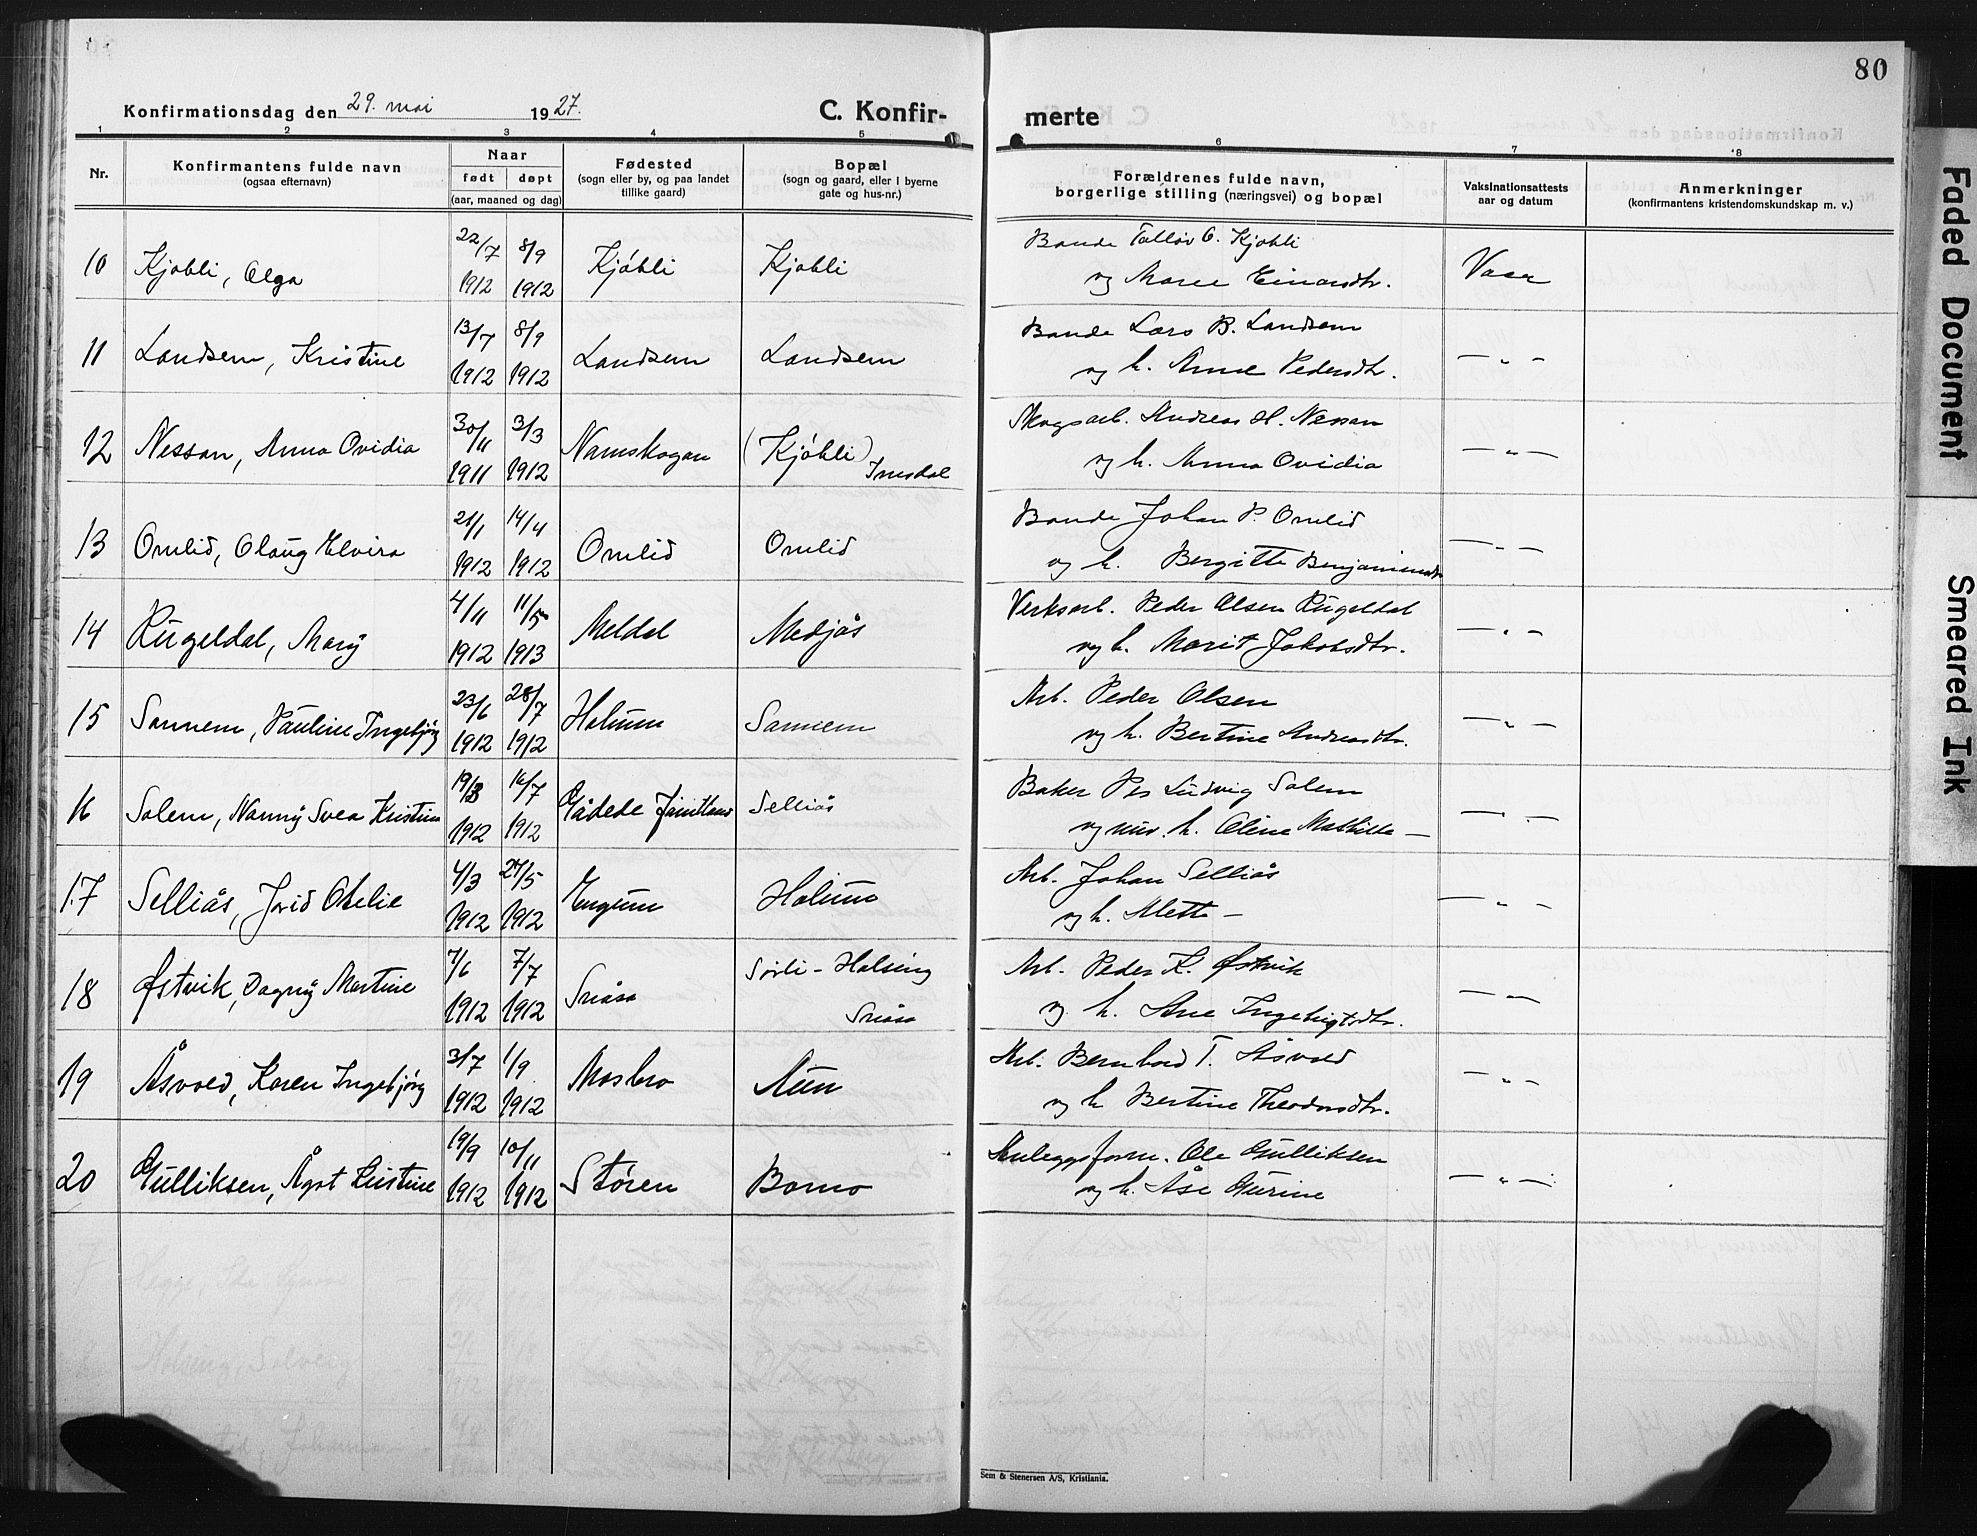 80
Konfirmationsdag den 29. mai 1927.
C. Konfirmerte
1 2 3 4 5 6 7 8
Nr.
Konfirmantens fulde navn
(ogsaa efternavn)
Naar
født døpt
(aar, maaned og dag)
Fødested
(sogn eller by, og paa landet
tillike gaard)
Bopæl
(sogn og gaard, eller i byerne
gate og hus-nr.)
Forældrenes fulde navn,
borgerlige stilling (næringsvei) og bopæl
Vaksinationsattests
aar og datum
Anmerkninger
(konfirmantens kristendomskundskap m. v.)
10 Kjøbli, Olga 22/7 1912 8/9 1912 Kjøbli Kjøbli
Bonde Tollöv O. Kjøbli
og Maree Einarsdtr. Vacc
11 Landsem, Kristine 13/7 1912 8/9 1912 Landsem Landsem
Bonde Lars B. Landsem
og h. Anne Pedersdtr. — " —
12 Nessan, Anna Ovidia 30/11 1911 3/3 1912 Namskogan (Kjøbli)
Skogsarb. Andreas H. Nessan
og h. Anna Ovidia — " —
13 Omlid, Olaug Elvira 21/1 1912 14/4 1912 Omlid Omlid
Bonde Johan P. Omlid
og h. Bergitte Benjaminsdtr — " —
14 Rugeldal, Mary 4/11 1912 11/5 1913 Meldal Medjås
Verksarb. Peder Olsen Rugeldal
og h. Marit Jakobsdtr. — " —
15 Sannem, Pauline Ingebjörg 23/6 1912 28/7 1912 Harum Sannem
Arb. Peder Olsen
og h. Bertine Andreasdtr. — " —
16 Solem, Nanny Svea Kristine 19/3 1912 16/7 1912 Gådede Jämtland Selliås
Baker Per Ludvig Solem
og h. Oline Mathilde — — " —
17 Selliås, Jorid Otelie 4/3 1912 27/5 1912 Holum
Arb. Johan Selliås
og h. Mette — — " —
18 Østvik, Dagny Martine 7/6 1912 7/7 1912 Snåsa Sørli - Holsing
Snåsa
Arb. Peder K. Østvik
og h. Ane Ingebrigtsdtr. — " —
19 Åsvold, Karen Ingebjörg 3/7 1912 1/9 1912 Mosbro Aun
Arb. Bernhard T. Åsvold
og h Bertine Theodorsdtr. — " —
20 Gulliksen, Ågot Kristine 19/9 1912 10/11 1912 Støren Bomo
Anleggsform. Ole Gulliksen
og h. Åse Gurine — " —
Sem & Stenersen A/S, Kristiania.
Faded Document
Smeared Ink